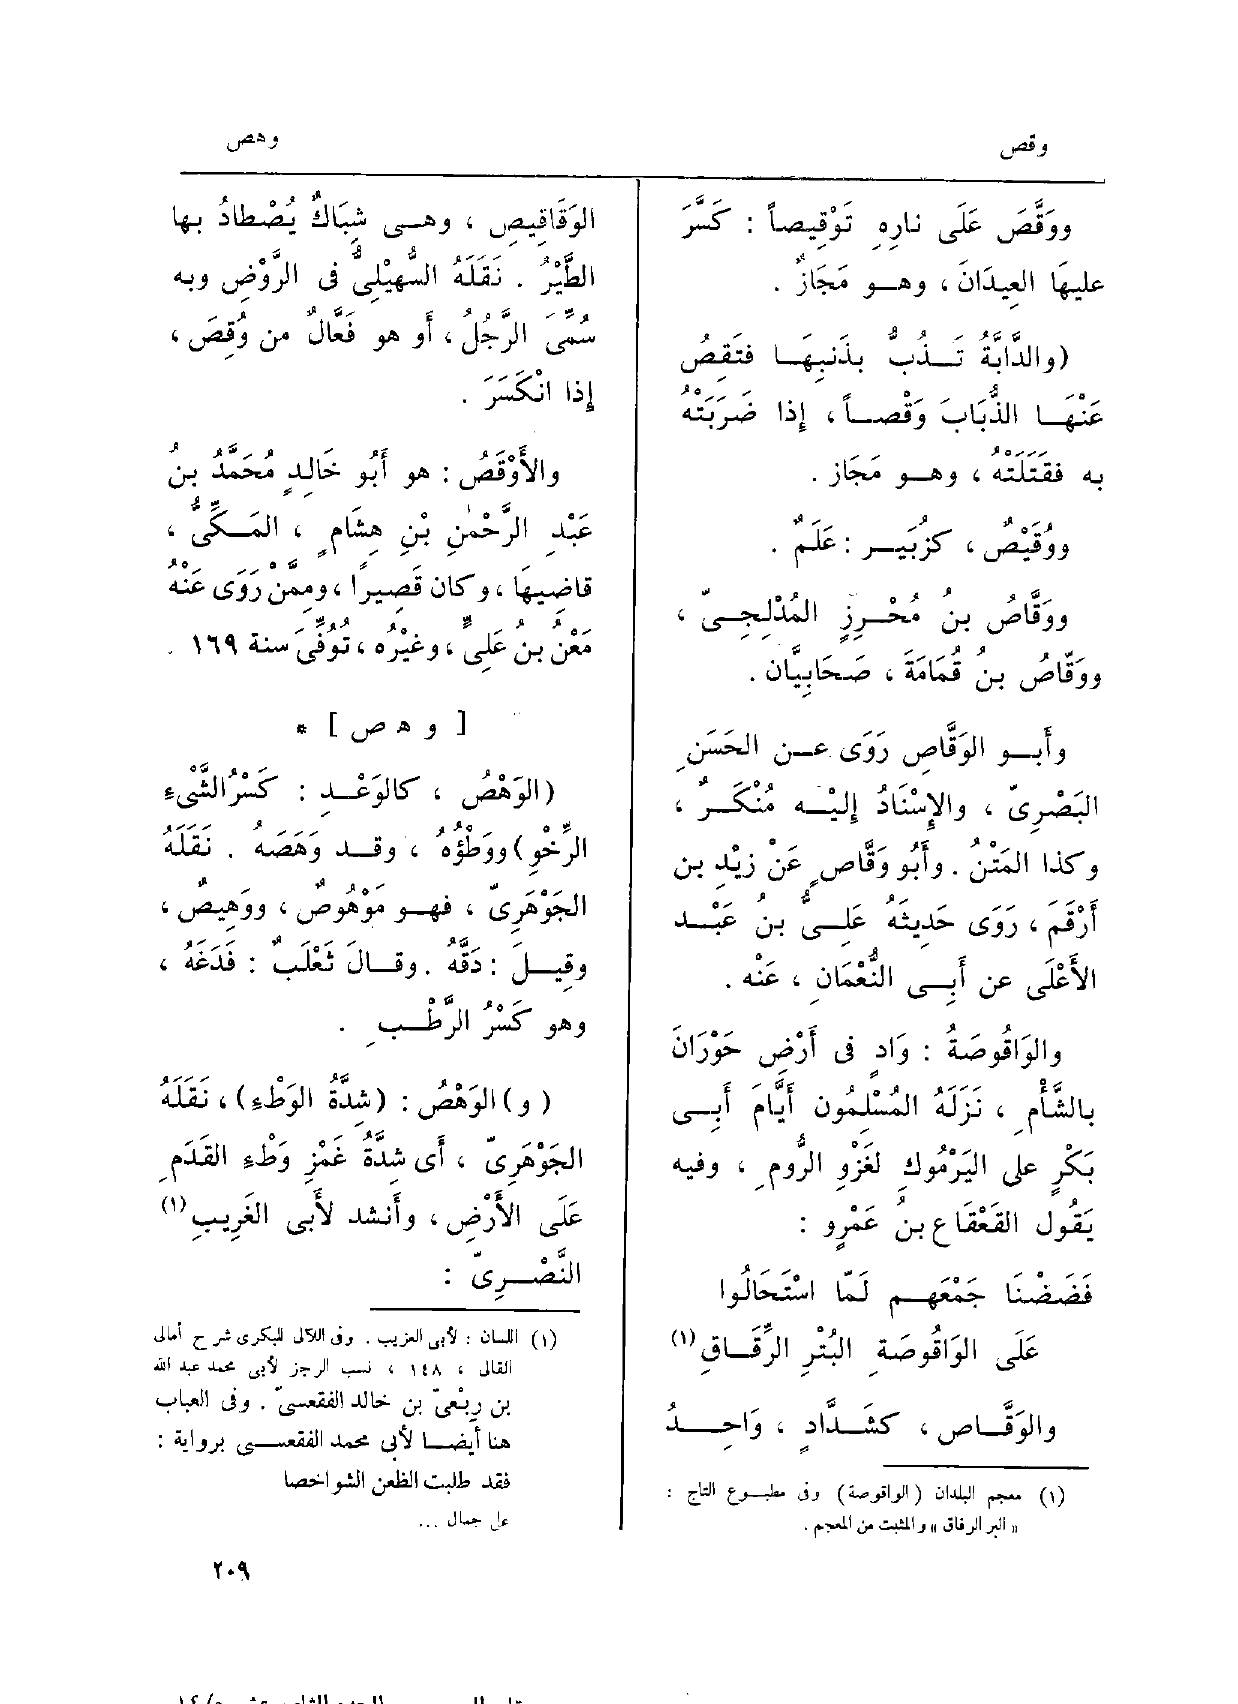 وقص
وهص
ووَقَّصَ عَلَى نارِهِ تَوْقِيصاً : كَسَّرَ
عليهَا العِيدَانَ ، وهــو مَجَازٌ .
(والدَّابَّةُ تَــذُبُّ بذَنَبِهَــا فتَقِصُ
عَنْهَــا الذُّبَابَ وَقْصــاً ، إذا ضَرَبَتْهُ
به فقَتَلَتْه ، وهــو مَجَاز .
ووُقَيْصٌ ، كزُبَيــر : عَلَمٌ .
ووَقَّاصُ بنُ مُحْــرِزٍ المُدْلِجِــىّ ،
ووَقّاصُ بنُ قُمَامَةَ ، صَحَابِيَّان .
وأَبــو الوَقَّاصِ رَوَى عــن الحَسَنِ
البَصْرِىّ ، والإِسْنَادُ إِليْــه مُنْكَــرٌ ،
وكذا المَتْنُ . وأَبُو وَقَّاصٍ عَنْ زيْدِ بن
أَرْقَمَ ، رَوَى حَدِيثَهُ عَلِــىُّ بنُ عَبْــد
الأَعْلَى عن أَبِــى النُّعْمَانِ ، عَنْه .
والوَاقُوصَةُ : وَادٍ فى أَرْضِ حَوْرَانَ
بالشَّأْمِ ، نَزَلَهُ المُسْلِمُون أَيَّامَ أَبِــى
بَكْرٍ على اليَرْمُوكِ لغَزْوِ الرُّومِ ، وفيه
يَقُول القَعْقَاع بنُ عَمْرٍو :
فَضَضْنَا جَمْعَهــم لَمّا اسْتَحَالُوا
عَلَى الوَاقُوصَةِ البُتْرِ الرِّقَــاقِ (١)
والوَقَّــاص ، كشَــدَّادٍ ، وَاحِــدُ
(١) معجم البلدان (الواقوصة) وفى مطبــوع التاج :
« البر الرفاق » والمثبت من المعجم .
الوَقَاقِيصِ ، وهــى شِبَاكٌ يُصْطادُ بها
الطَّيْرُ . نَقَلَهُ السُّهيْلِىُّ فى الرَّوْضِ وبه
سُمِّىَ الرَّجُلُ ، أَو هو فَعَّالٌ من وُقِصَ ،
إذا انْكَسَرَ .
والأَوْقَصُ : هو أَبُو خَالِدٍ مُحَمَّدُ بنُ
عَبْدِ الرَّحْمٰنِ بْنِ هِشَامٍ ، المَــكِّىُّ ،
قاضِيهَا ، وكان قَصِيرًا ، وممَّنْ رَوَى عَنْهُ
مَعْنُ بن عَلِىٍّ ، وغيْرُه ، تُوُفِّىَ سنة ١٦٩ .
[ و ه ص ] *
(الوَهْصُ ، كالوَعْــدِ : كَسْرُ الشَّىْءِ
الرِّخْوِ) ووَطْؤُهُ ، وقــد وَهَصَهُ . نَقَلَهُ
الجَوْهَرِىّ ، فهــو مَوْهُوصٌ ، ووَهِيصٌ ،
وقِيــلَ : دَقَّهُ . وقــالَ ثَعْلَبٌ : فَدَغَهُ ،
وهو كَسْرُ الرَّطْــبِ .
( و ) الوَهْصُ : (شِدَّةُ الوَطْءِ) ، نَقَلَهُ
الجَوْهَرِىّ ، أَى شِدَّةُ غَمْزِ وَطْءِ القَدَمِ
عَلَى الأَرْضِ ، وأَنشد لأَبى الغَرِيبِ (١)
النَّصْــرِىّ :
(١) اللسان : لأبى العزيب . وفى اللآلى للبكرى شرح أمالى
القالى ، ١٤٨ ، نسب الرجز لأبى محمد عبد الله
بن رِبْعىّ بن خالد الفقعسىّ . وفى العباب
هنا أيضــا لأبى محمد الفقعســى برواية :
فقد طلبت الظعن الشواخصا
على جمال ...
٢٠٩